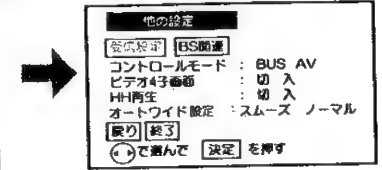 他の設定
受信設定 BS関連
コントロールモード : BUS AV
ビデオ4子画面 : 切 入
HH再生 : 切 入
オートワイド設定 : スムーズ ノーマル
戻り 終了
で選んで 決定 を押す